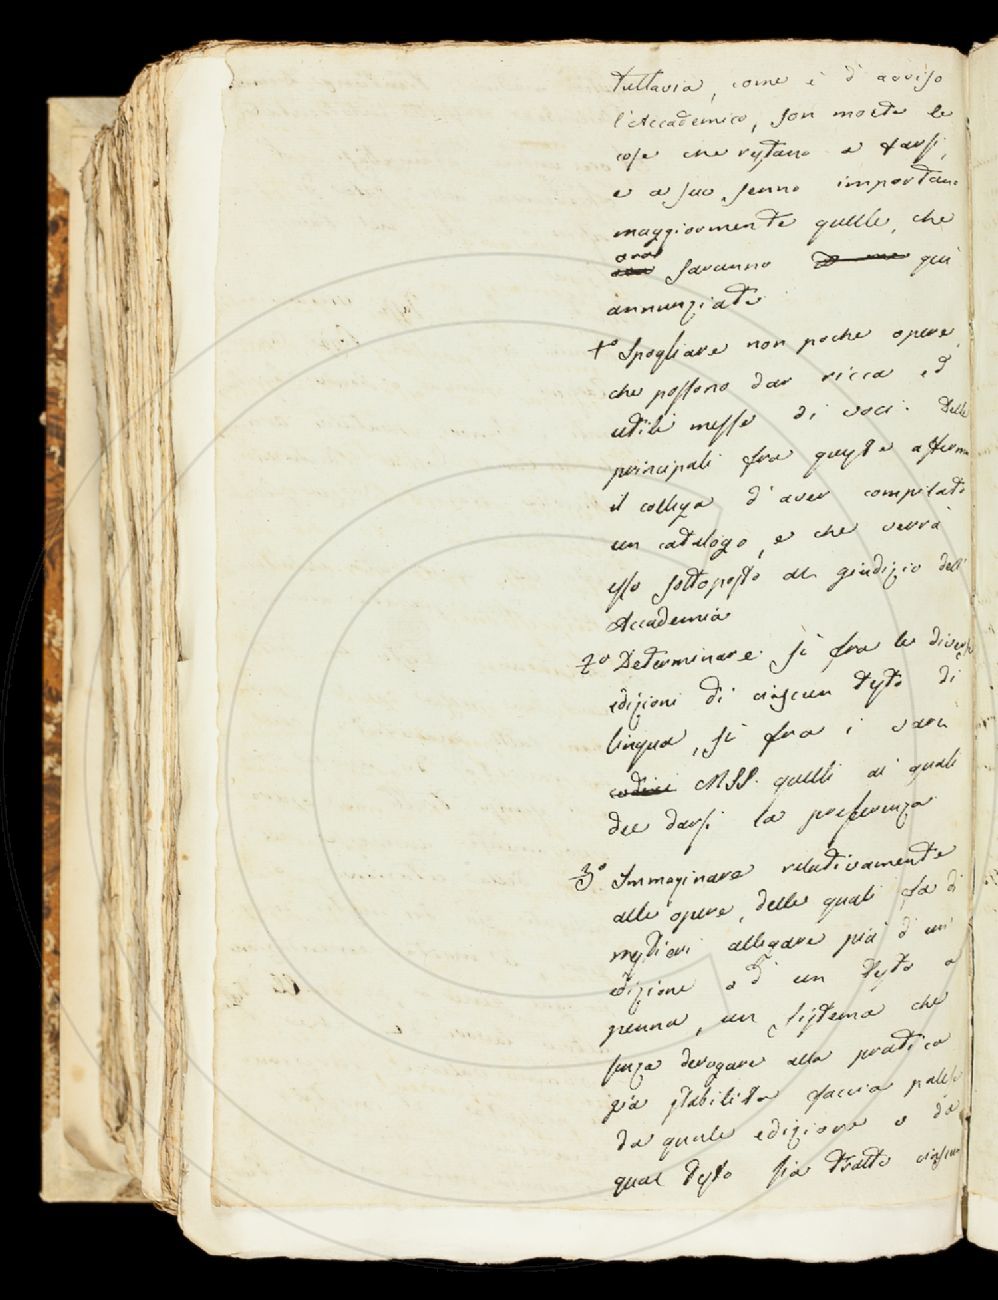 Tuttavia, come è d'avviso
l'Accademico, son molte le
cose che restano a farsi,
e a suo senno importano
maggiormente quelle, che
ora saranno qui
annunziate
1° Spogliare non poche opere,
che possono dar ricca ed
utile messe di voci. Delle
principali fra queste afferma
il collega d'aver compilato
un catalogo, e che verrà
esso sottoposto al giudizio dell'
Accademia
2° Determinare sì fra le diverse
edizioni di ciascun testo di
lingua, sì fra i varii
codici MSS. quelli ai quali
dee darsi la preferenza
3° Immaginare relativamente
alle opere, delle quali fa di
mestieri allegare più d'un'
edizione o d'un testo a
penna, un sistema che
senza derogare alla pratica
già stabilita faccia palese
da quale edizione o da
qual testo sia tratto ciascun